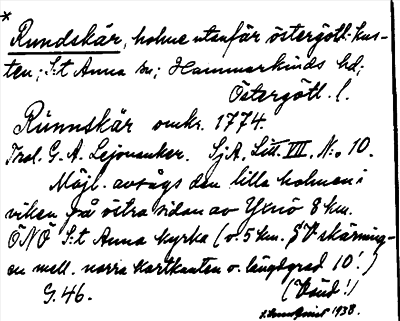 *
Rundskär, holme utanför östergötl. kus-
ten; S:t Anna sn; Hammarkinds hd;
Östergötl. l.
Rünnskär omkr. 1774.
Trol. G. A. Lejonanker. SjA, Litt. VII, N:o 10.
Möjl. avsågs den lilla holmen i
viken på östra sidan av Yxnö 8 km.
ÖNÖ S:t Anna kyrka (o. 5 km. SV skärning-
en mell. norra kartkanten o. längdgrad 10'.)
G. 46. (Vänd!)
1938.